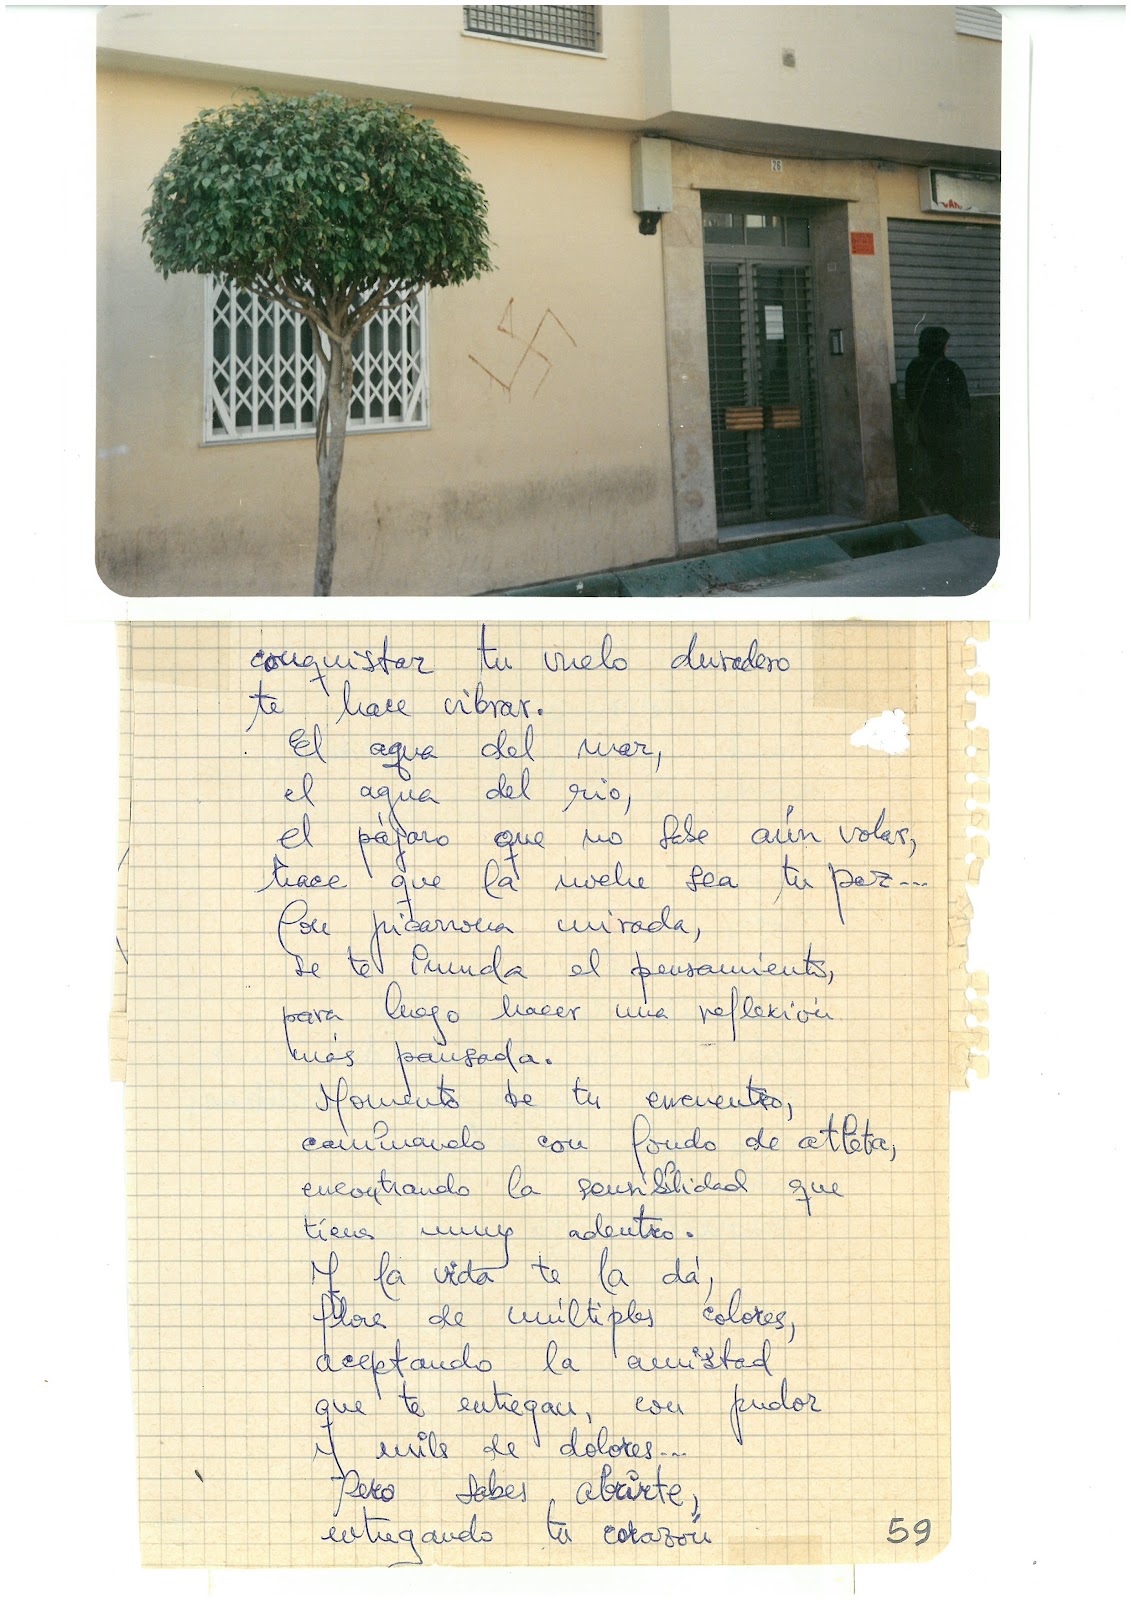 26
conquistar tu vuelo duradero
te hace vibrar.
El agua del mar,
el agua del rio,
el pájaro que no sabe aún volar,
hace que la noche sea tu paz...
Con picarrona mirada,
se te inunda el pensamiento,
para luego hacer una reflexión
más pausada.
Momento de tu encuentro,
caminando con fondo de atleta,
encontrando la sensibilidad que
tienes muy adentro.
Y la vida te la dá,
flore de múltiples colores,
aceptando la amistad
que te entregan, con pudor
y mils de dolores...
Pero sabes abrirte,
entregando tu corazón
59